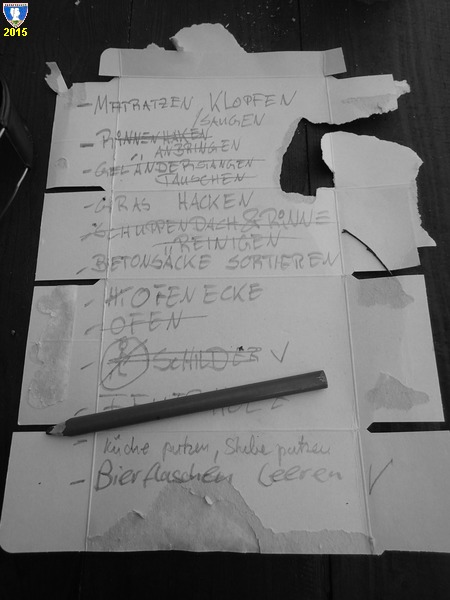 2015
- MATRATZEN KLOPFEN
/SAUGEN
- RINNENHAKEN
ANBRINGEN
- GELÄNDERSTANGEN
TAUSCHEN
- GRAS HACKEN
- SCHUPPENDACH & RINNE
REINIGEN
- BETONSÄCKE SORTIEREN
- OFENECKE
- OFEN
- SCHILDER ✓
- Küche putzen, Stube putzen
- Bierflaschen leeren ✓